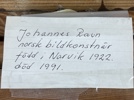 Johannes Ravn
norsk bildkonstnär
född, Narvik 1922
död 1991.